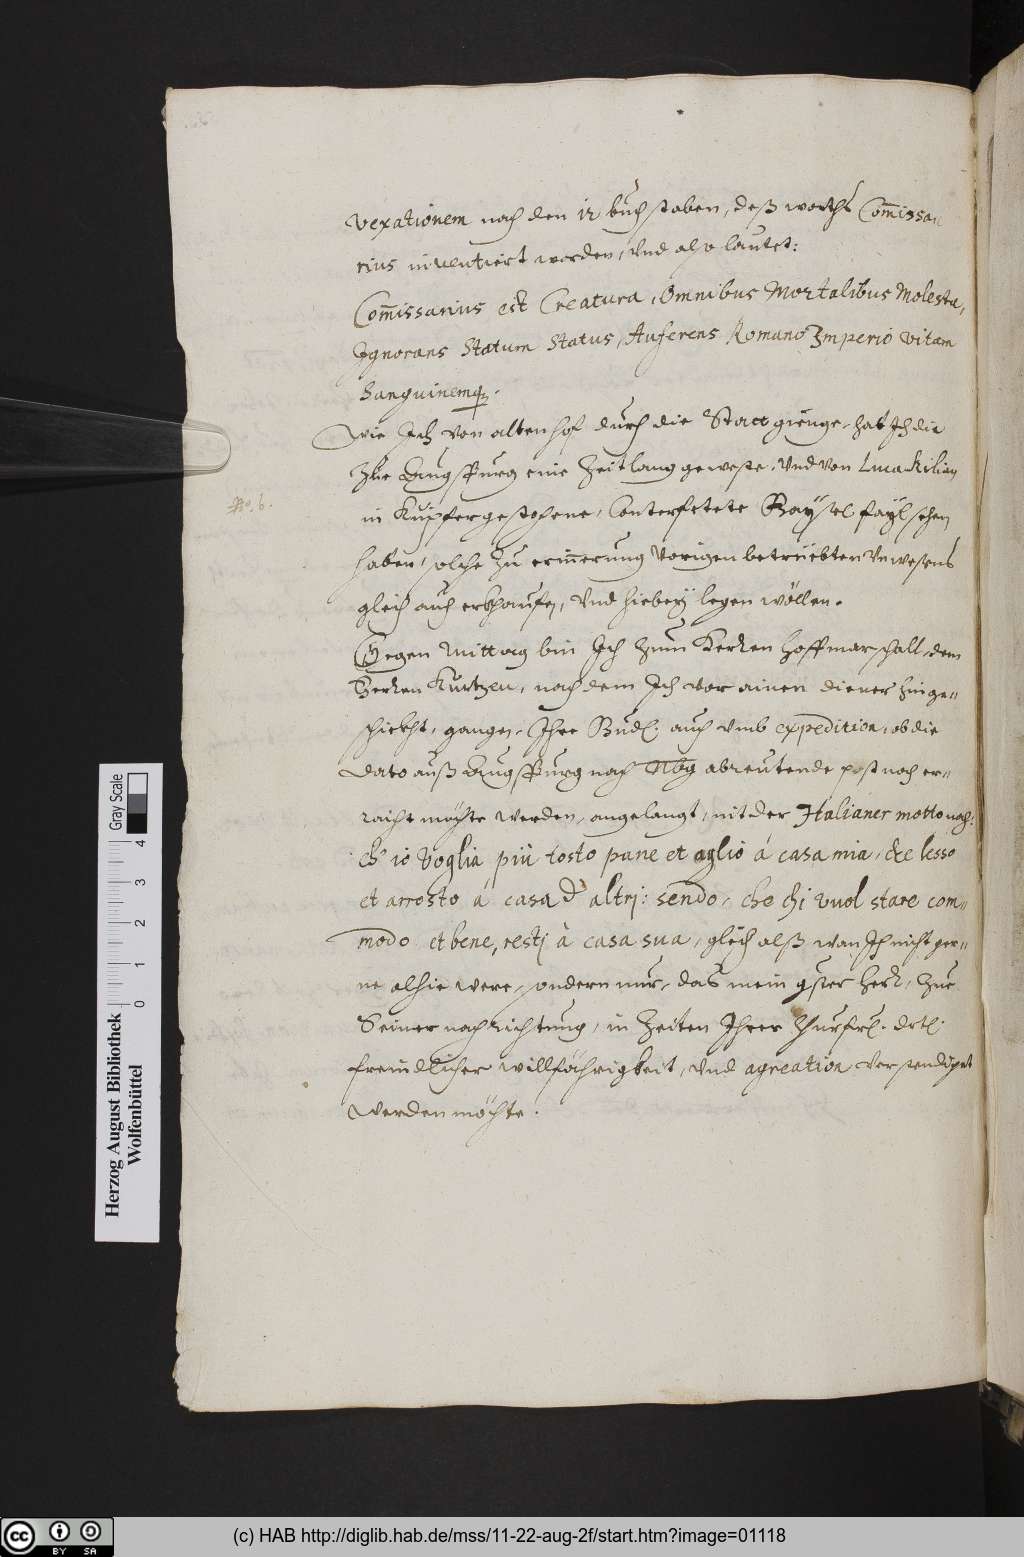 vexationem nach den 12 buchstaben, deß worths Com̄issa
rius inventiert worden, vnd also lautet:
Com̄issarius est Creatura, Omnibus Mortalibus Molesta,
Ignorans Statum Status, Auferens Romano Imperio vitam
Sanguinemq.
Wie Ich von altenhof durch die Statt gienge, hab Ich die
Zue Augspurg eine Zeitlang geweste, vnd von Luca Kilian
in Kupfer gestochene, Conterfetete faylsehen
No. 6.
haben, solche zu erin̄erung vorigen betrüebten vnwesens
gleich auch erkhaufen, vnd hiebey legen wöllen.
Gegen Mittag bin Ich zum Herren Hoffmarschall, dem
Herren Kurtzen, nach dem Ich vor ainen diener hinge-
schickht, gangen, Ihre auch vmb expedition, ob die
dato auß Augspurg nach Nbg abreutende post noch er-
raicht möchte werden, angelangt, mit der Italianer motto nach:
ch' io voglia più tosto pane et aglio á casa mia, che lesso
et arrosto á casa d' altrj: sendo, che chi vuol stare com-
modo et bene, restj à casa sua, gleich alß wan Ich nicht ger-
ne alhie were, sondern nur, das mein gster herr, zue
Seiner nachrichtung, in Zeiten Ihrer Churfrl. drtl:
freindlicher willfährigkeit, vnd agreation verstendiget
werden möchte.
Herzog August Bibliothek
Wolfenbüttel
Gray Scale
0 1 2 3 4
cc BY SA
(c) HAB http://diglib.hab.de/mss/11-22-aug-2f/start.htm?image=01118